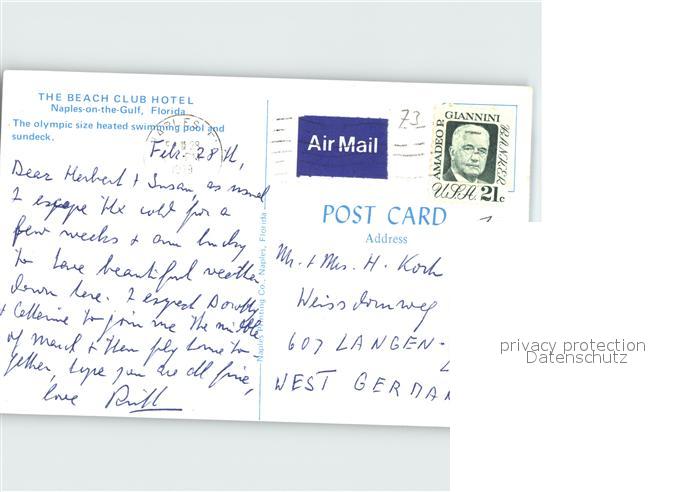 THE BEACH CLUB HOTEL
Naples-on-the-Gulf, Florida
The olympic size heated swimming pool and
sundeck.
Feb. 28th,
Dear Herbert + Susan, as usual
I escape the cold for a
few weeks + am lucky
to have beautiful weather
down here. I expect Dorothy
+ Catherine to join me the middle
of March + then fly home to-
gether, hope you are all fine,
love Ruth
Naples Printing Co., Naples, Florida
Air Mail
73
AMADEO P. GIANNINI
BANKER
USA 21c
POST CARD
Address
Mr. + Mrs. H. Koch
Weissdornweg
607 LANGEN-
WEST GERMAN
privacy protection
Datenschutz